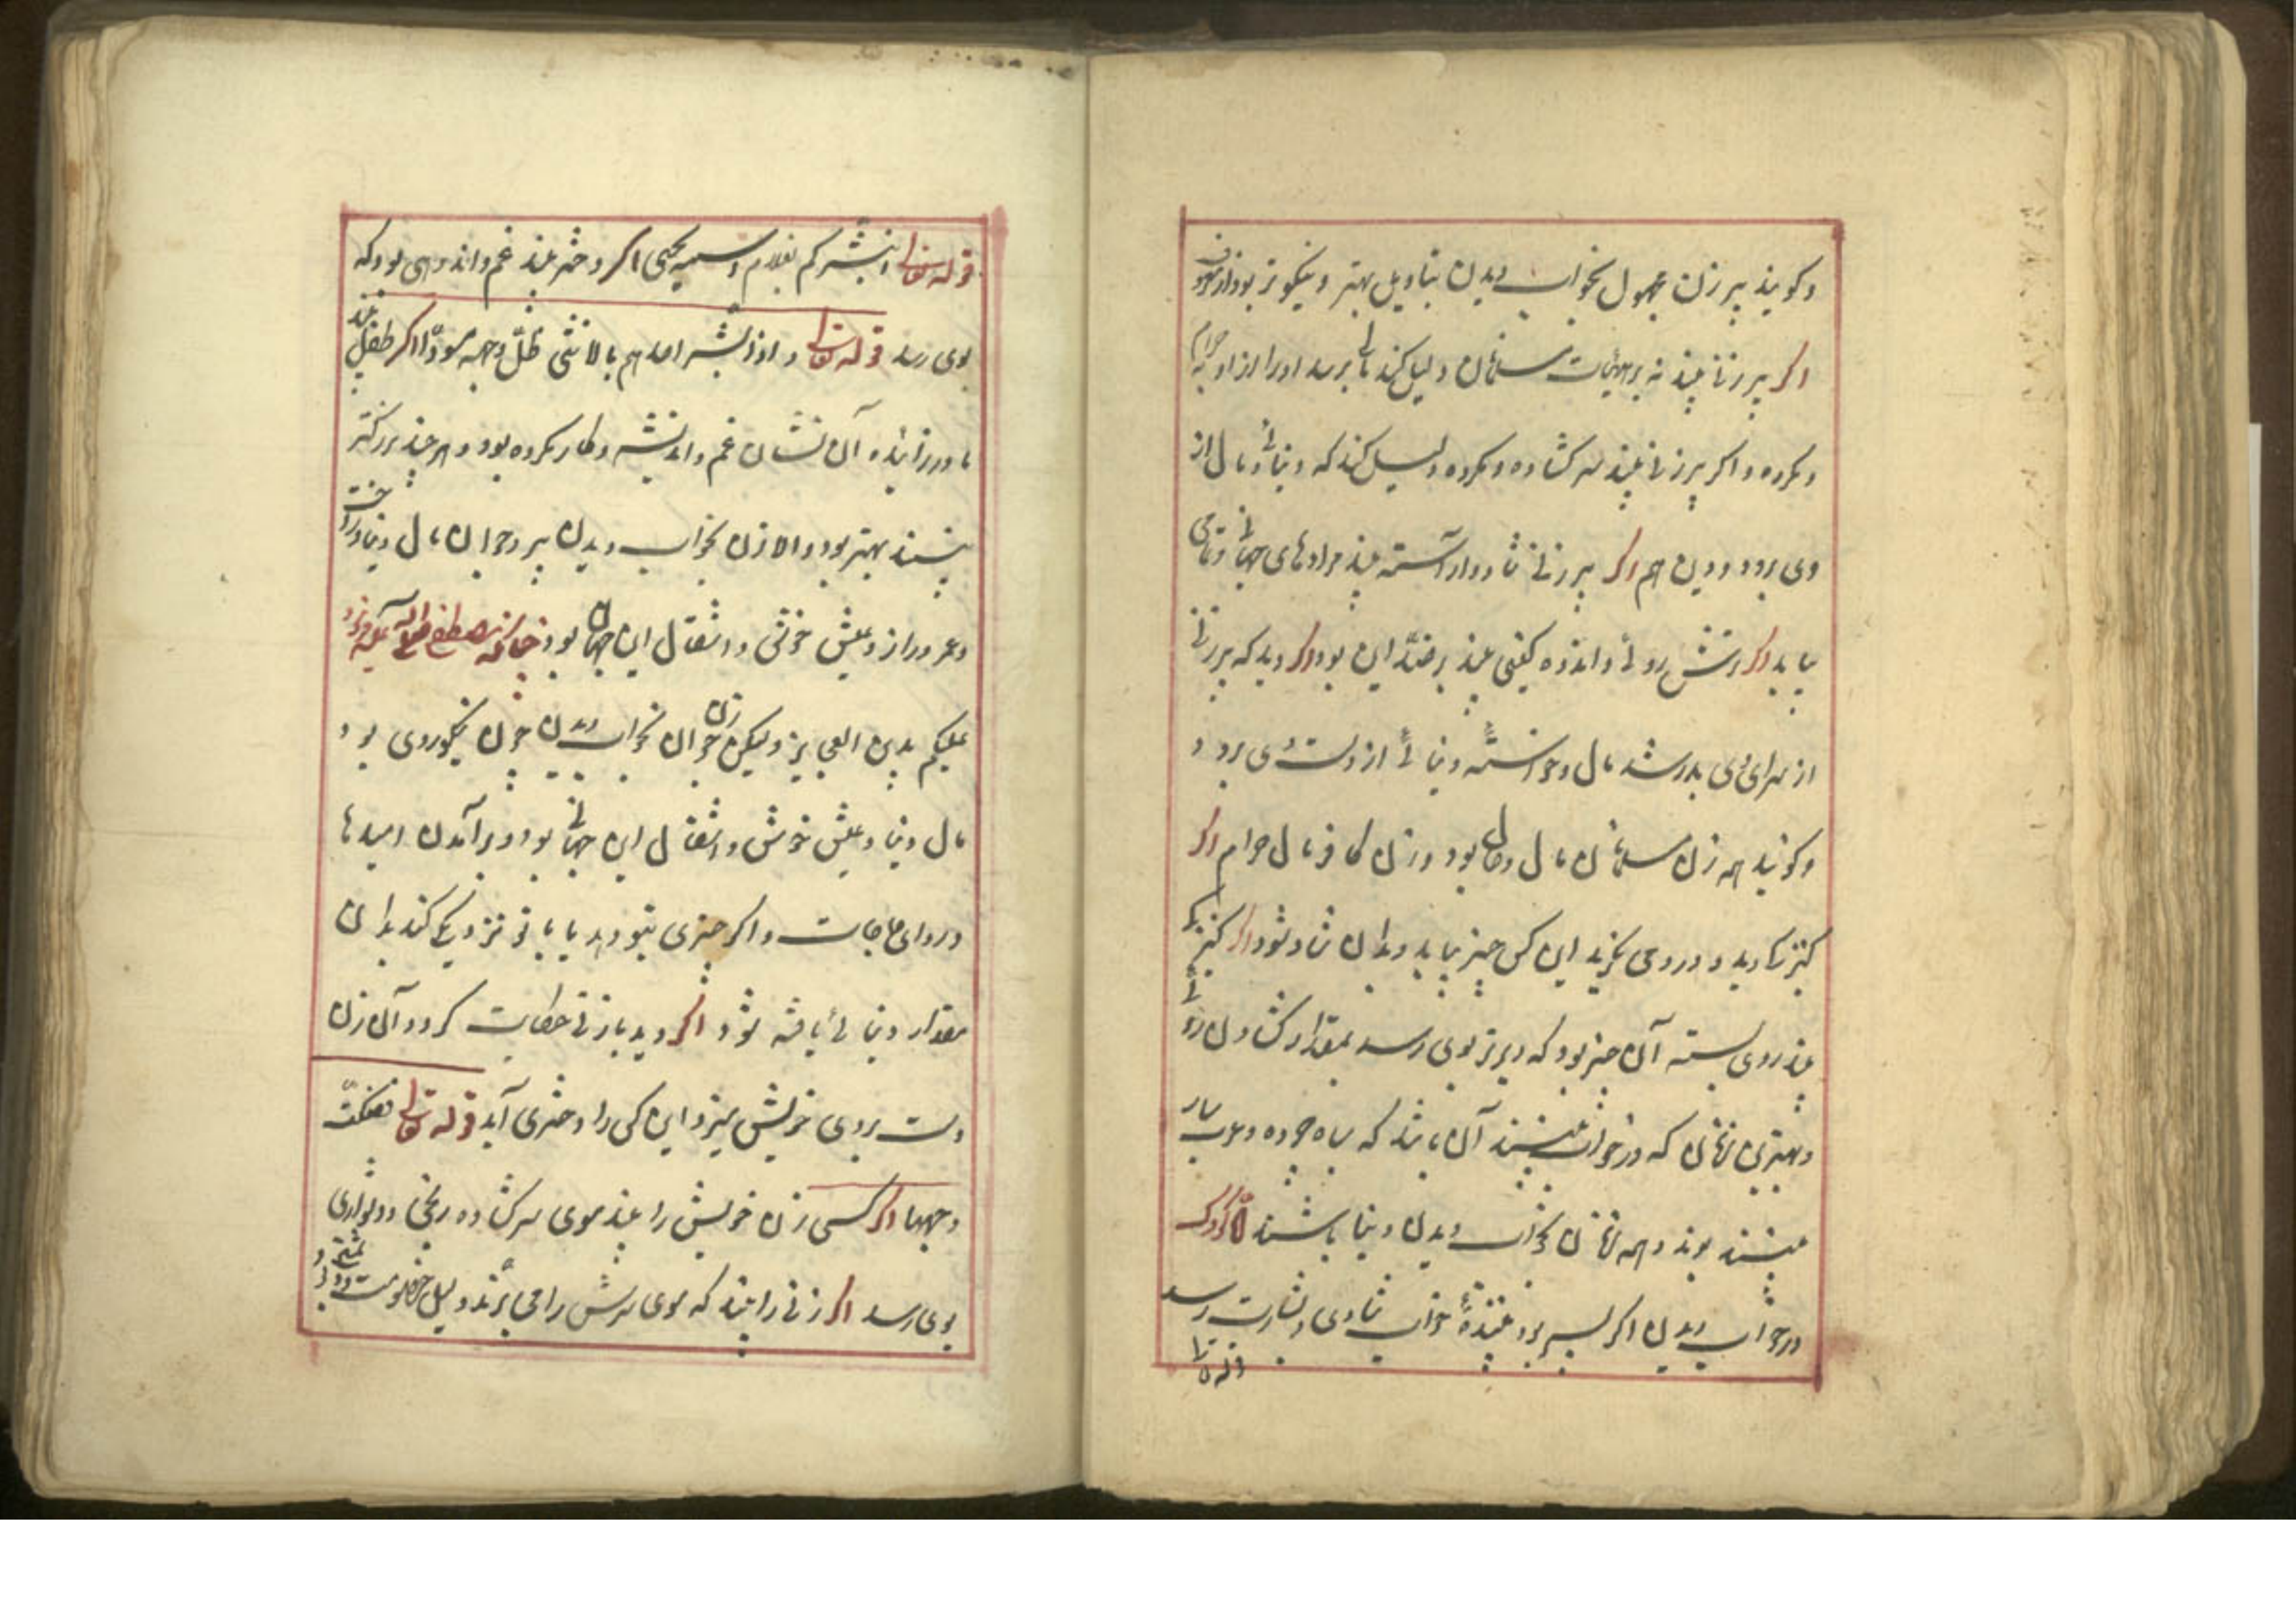 وکویند پیر زن مجهول بخواب دیدن بتاویل بهتر و نیکوتر بود از معروف
اکر پیر زنا بیند نه بر هیات مسلمان دلیل کند مالی برسد اورا از او نه حرام
ومکروه واکر پیر زنی بیند سر کشاده و مکروه دلیل کند که دنیائی و مال از
وی برود و دین هم اکر پیر زنی شاد و اراسته بیند مرادهای جهانی وتمامی
بیابد اکر ترش روئی و اندوه کینی بیند بر ضدّ این بود اکر دید که پیر زنی
از سرای وی بدر شد مال وخواسته دنیائی از دست وی برود و
وکویند همه زن مسلمان مال حلال بود وزن کافر مال حرام اکر
کنیزکا دید و در وی نکرید این کس چیز بیابد وبدان شاد شود اکر کنیزکی
بیند روی بسته آن چیز بود که دیرتر بوی رسد بمقدار کشادن روئی
وبهترین زنان که در خواب بینند آن باشد که سیاه چرده وعرب سار
بینند بوند وهمه زنان بخواب دیدن دنیا باشند امّا کودک
در خواب دیدن اکر پسر بود بیننده خواب شادی وبشارت رسد
قوله تعالی
قوله تعالی انا نبشرکم بغلام اسمه یحیی اکر دختر بیند غم واندوهی بود که
بوی رسد قوله تعالی واذا بشر احدهم بالانثی ظلّ وجهه مسودّا اکر طفل بیند
مادرزائیده آن نشان غم واندیشه وکار مکروه بود وهر چند بزرکتر
بینند بهتر بود والا زن بخواب دیدن پیر وجوان مال دنیا وراحت
وعمر دراز وعیش خوش واشتغال این جهان بود چنانکه مصطفی صلی الله علیه فرمود
علیکم بدین العجایز ولیکن زن جوان بخواب دیدن چون نیکوروی بود
مال دنیا وعیش خوش واشتغال این جهانی بود وبرآمدن امیدها
وروای حاجات واکر چیزی بتو دهد یا با تو نزدیکی کند بدان
مقدار دنیائی یافته شود اکر دید با زنی حکایت کرد و آن زن
دست بروی خویش میزد این کس را دختری آید قوله تعالی فصکّت
وجهها اکر کسی زن خویش را بیند موی سر کشاده رنجی ودشواری
بوی رسد اکر زنی را بیند که موی سرش را می برند دلیل خصومت